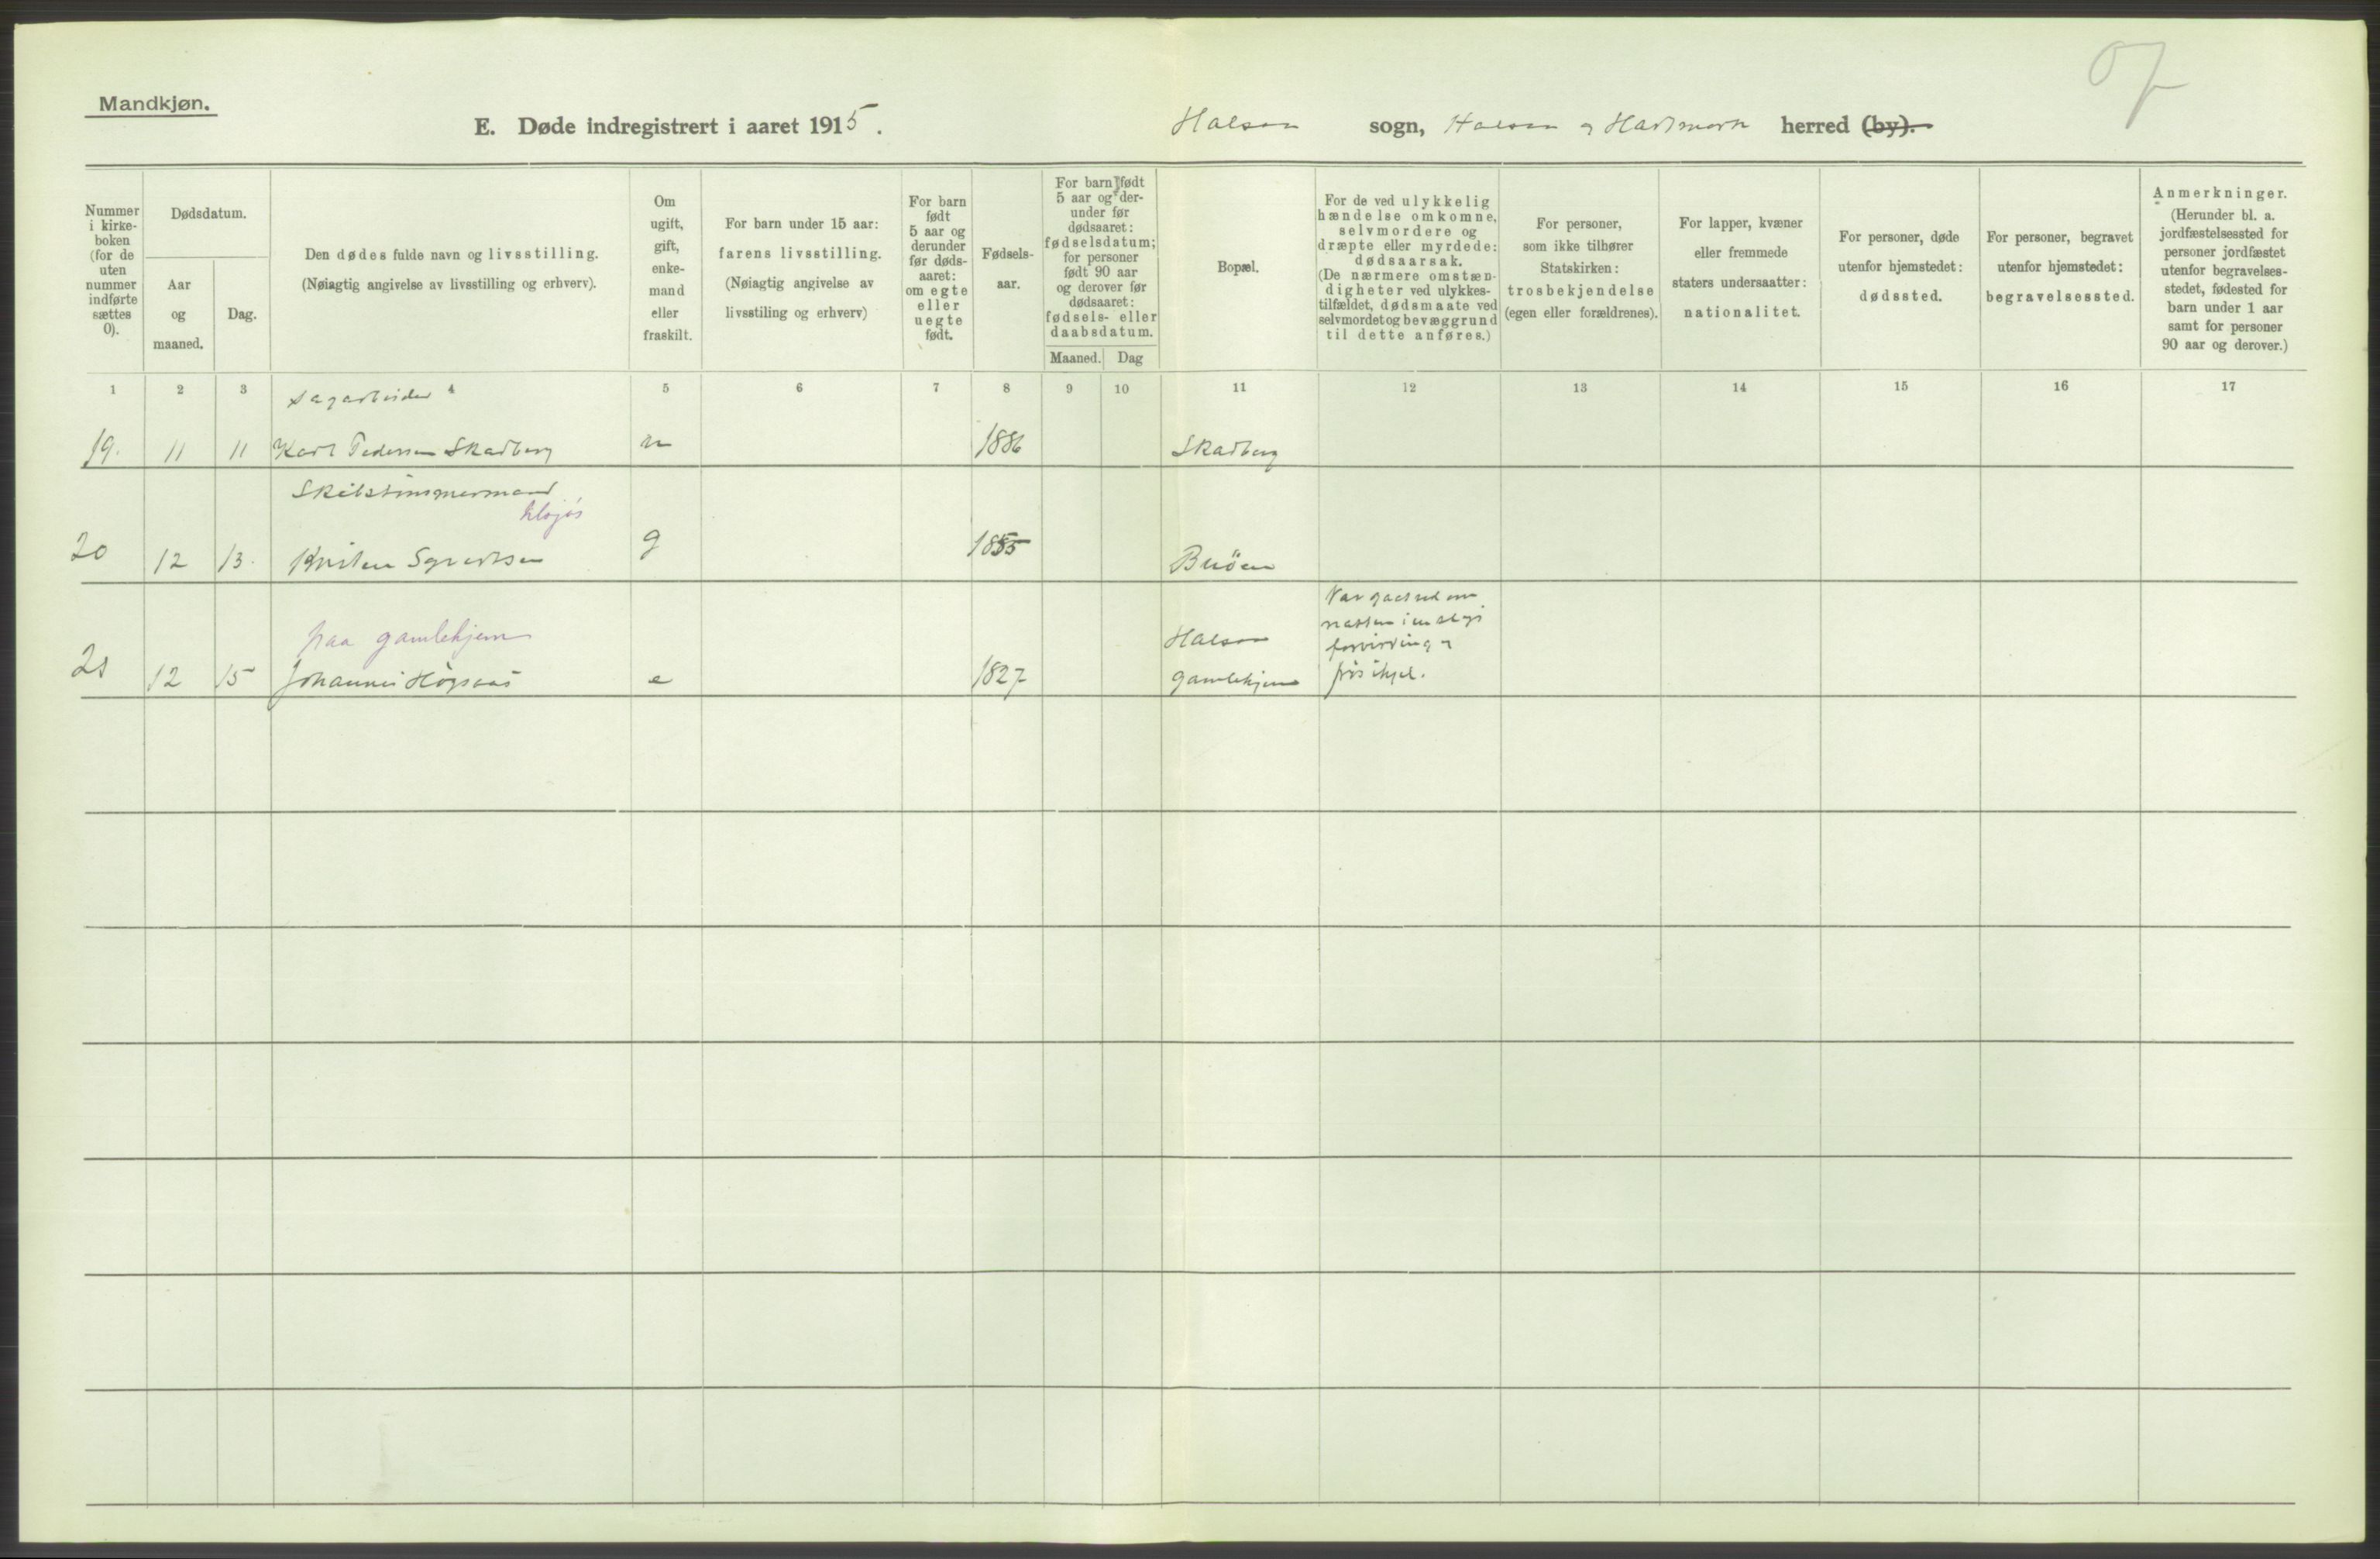 Mandkjøn.
E. Døde indregistrert i aaret 1915. Halsan sogn, Halsan og Hartmark herred (by).
Nummer i kirkeboken (for de uten nummer indførte sættes 0).
Dødsdatum.
Aar og maaned.
Dag.
Den dødes fulde navn og livsstilling.
(Nøiagtig angivelse av livsstilling og erhverv).
Om ugift, gift, enkemand eller fraskilt.
For barn under 15 aar:
farens livsstilling.
(Nøiagtig angivelse av livsstiling og erhverv)
For barn født 5 aar og derunder før dødsaaret: om egte eller uegte født.
Fødselsaar.
For barn født 5 aar og derunder før dødsaaret: fødselsdatum; for personer født 90 aar og derover før dødsaaret: fødsels- eller daabsdatum.
Maaned. Dag
Bopæl.
For de ved ulykkelig hændelse omkomne, selvmordere og dræpte eller myrdede: dødsaarsak.
(De nærmere omstændigheter ved ulykkestilfældet, dødsmaate ved selvmordet og bevæggrund til dette anføres.)
For personer, som ikke tilhører Statskirken: trosbekjendelse (egen eller forældrenes).
For lapper, kvæner eller fremmede staters undersaatter: nationalitet.
For personer, døde utenfor hjemstedet: dødssted.
For personer, begravet utenfor hjemstedet: begravelsessted.
Anmerkninger.
(Herunder bl. a. jordfæstelsessted for personer jordfæstet utenfor begravelsesstedet, fødested for barn under 1 aar samt for personer 90 aar og derover.)
1 2 3 4 5 6 7 8 9 10 11 12 13 14 15 16 17
Sagarbeider
19. 11 11 Karl Pedersen Skadberg u 1886 Skadberg
Skibstimmermand
20 12 13. Kristen Sgvertsen g 1855 Buöen
paa gamlehjem Halsan
21 12 15 Johannes Høgsaas e 1827 gamlehjem
Var gaat ud om
natten i en slags
forvirring og
frøs ihjel.